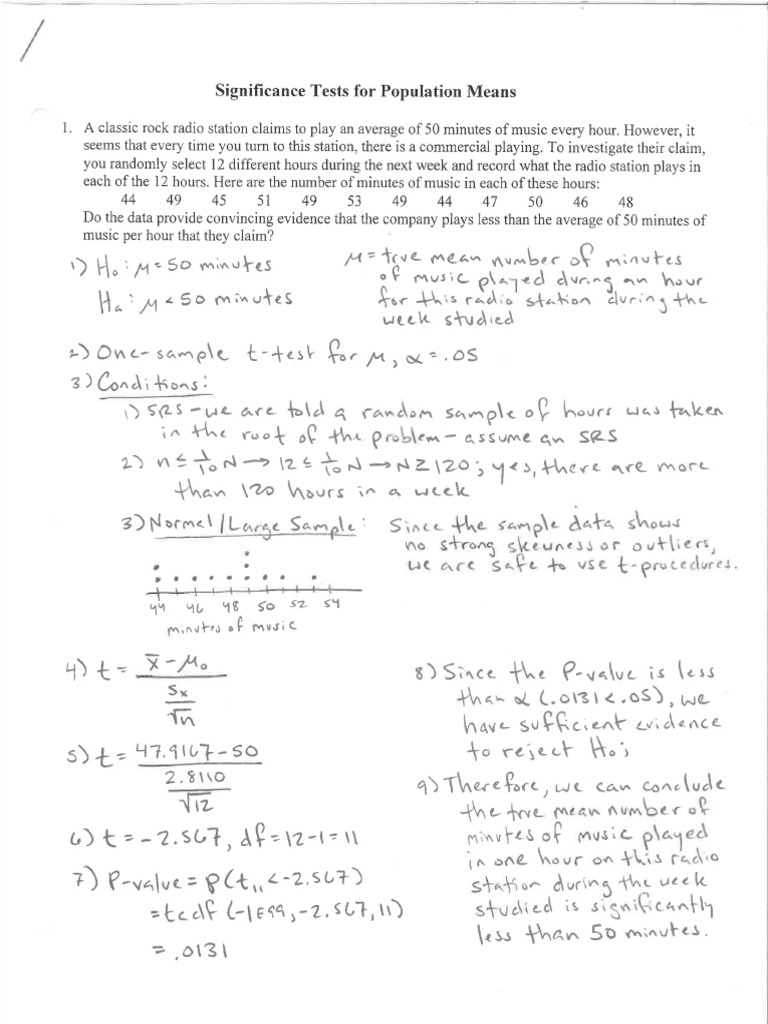 /
Significance Tests for Population Means
1. A classic rock radio station claims to play an average of 50 minutes of music every hour. However, it
seems that every time you turn to this station, there is a commercial playing. To investigate their claim,
you randomly select 12 different hours during the next week and record what the radio station plays in
each of the 12 hours. Here are the number of minutes of music in each of these hours:
44 49 45 51 49 53 49 44 47 50 46 48
Do the data provide convincing evidence that the company plays less than the average of 50 minutes of
music per hour that they claim?
1) H₀: μ = 50 minutes
Hₐ: μ < 50 minutes
μ = true mean number of minutes
of music played during an hour
for this radio station during the
week studied
2) One-sample t-test for μ, α = .05
3) Conditions:
1) SRS - we are told a random sample of hours was taken
in the root of the problem - assume an SRS
2) n ≤ 1/10 N → 12 ≤ 1/10 N → N ≥ 120; yes, there are more
than 120 hours in a week
3) Normal/Large Sample: Since the sample data shows
no strong skewness or outliers,
we are safe to use t-procedures.
44 46 48 50 52 54
minutes of music
4) t = (x̄ - μ₀) / (sₓ/√n)
5) t = (47.9167 - 50) / (2.8110/√12)
6) t = -2.567, df = 12-1 = 11
7) P-value = P(t₁₁ < -2.567)
= tcdf (-1E99, -2.567, 11)
= .0131
8) Since the P-value is less
than α (.0131 < .05), we
have sufficient evidence
to reject H₀;
9) Therefore, we can conclude
the true mean number of
minutes of music played
in one hour on this radio
station during the week
studied is significantly
less than 50 minutes.